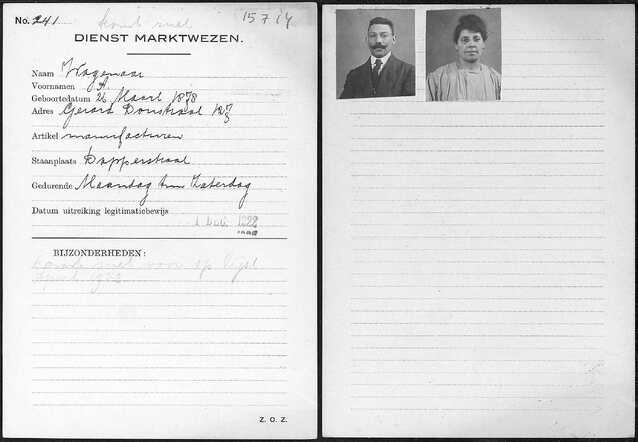 No. 241. komt niet 15 7 14
DIENST MARKTWEZEN.
Naam Wagenaar
Voornamen A
Geboortedatum 26 Maart 1878
Adres Gerard Doustraat 127
Artikel manufacturen
Staanplaats Dapperstraat
Gedurende Maandag t/m Zaterdag
Datum uitreiking legitimatiebewijs
1922
BIJZONDERHEDEN:
komt niet voor op lijst
April 1922
Z. O. Z.